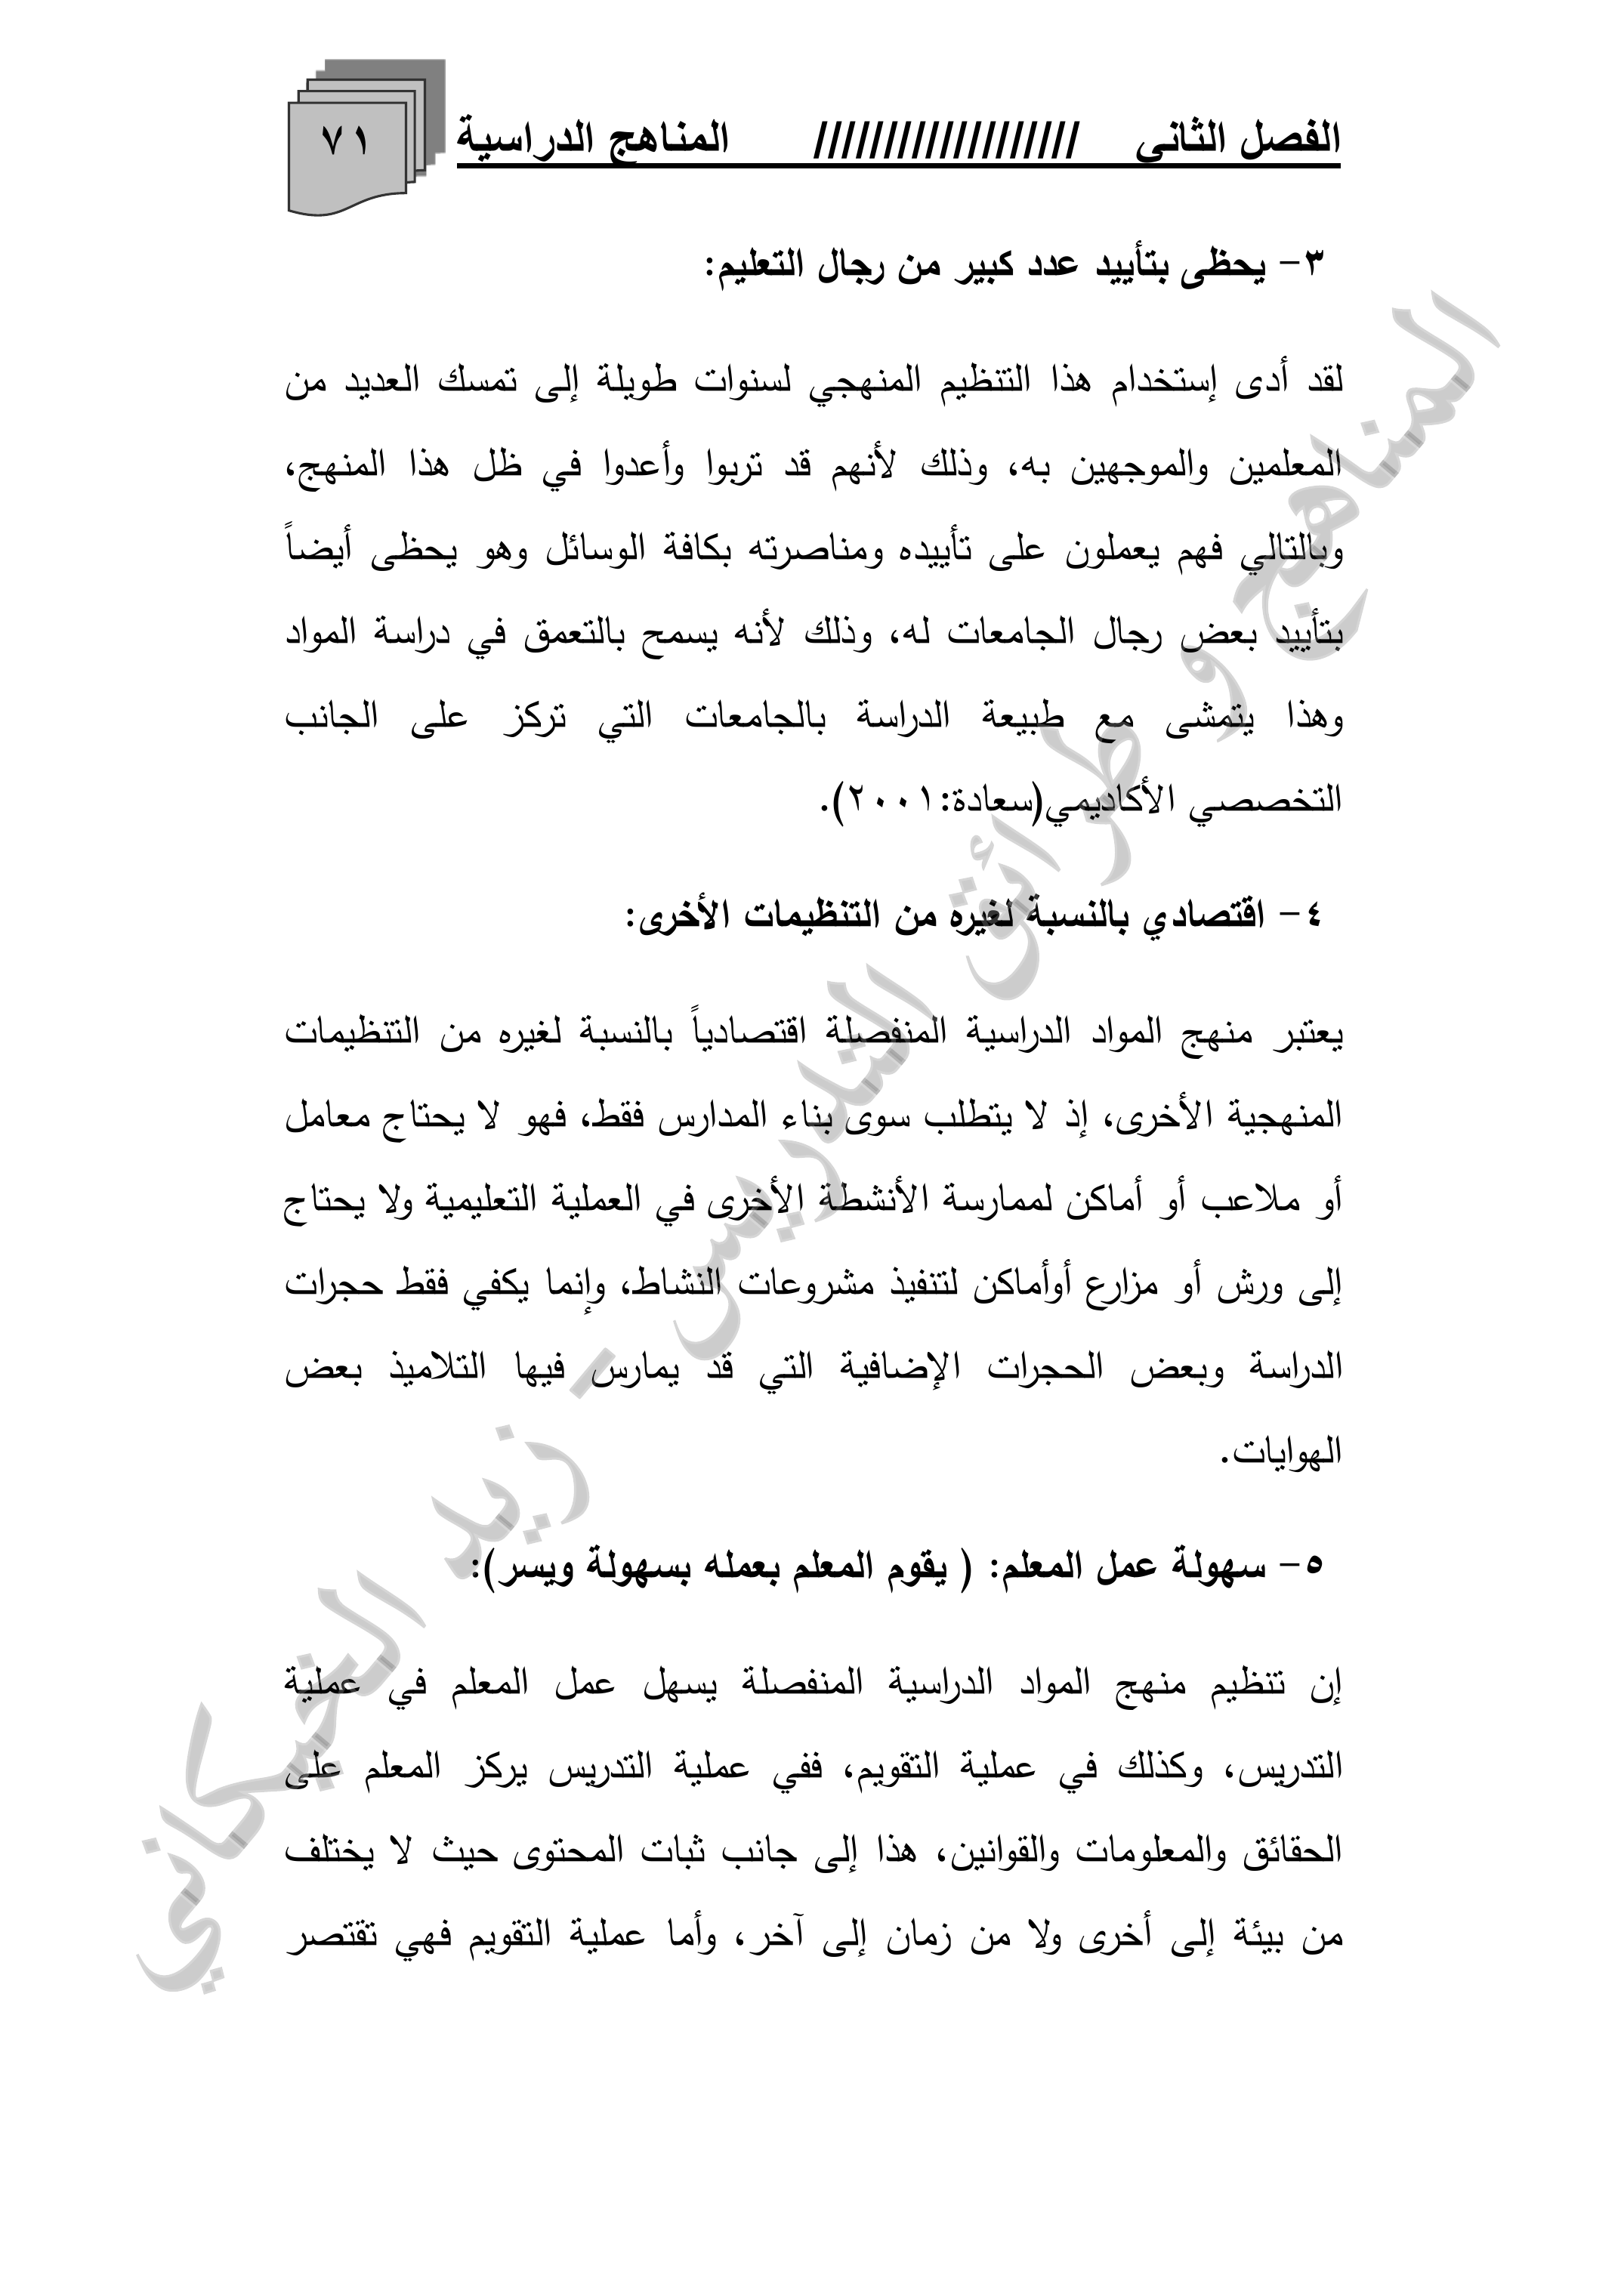 الفصل الثاني /////////////////// المناهج الدراسية ٧١
٣- يحظى بتأييد عدد كبير من رجال التعليم:
لقد أدى إستخدام هذا التنظيم المنهجي لسنوات طويلة إلى تمسك العديد من
المعلمين والموجهين به، وذلك لأنهم قد تربوا وأعدوا في ظل هذا المنهج،
وبالتالي فهم يعملون على تأييده ومناصرته بكافة الوسائل وهو يحظى أيضاً
بتأييد بعض رجال الجامعات له، وذلك لأنه يسمح بالتعمق في دراسة المواد
وهذا يتمشى مع طبيعة الدراسة بالجامعات التي تركز على الجانب
التخصصي الأكاديمي(سعادة:٢٠٠١).
٤- اقتصادي بالنسبة لغيره من التنظيمات الأخرى:
يعتبر منهج المواد الدراسية المنفصلة اقتصادياً بالنسبة لغيره من التنظيمات
المنهجية الأخرى، إذ لا يتطلب سوى بناء المدارس فقط، فهو لا يحتاج معامل
أو ملاعب أو أماكن لممارسة الأنشطة الأخرى في العملية التعليمية ولا يحتاج
إلى ورش أو مزارع أوأماكن لتنفيذ مشروعات النشاط، وإنما يكفي فقط حجرات
الدراسة وبعض الحجرات الإضافية التي قد يمارس فيها التلاميذ بعض
الهوايات.
٥- سهولة عمل المعلم: ( يقوم المعلم بعمله بسهولة ويسر):
إن تنظيم منهج المواد الدراسية المنفصلة يسهل عمل المعلم في عملية
التدريس، وكذلك في عملية التقويم، ففي عملية التدريس يركز المعلم على
الحقائق والمعلومات والقوانين، هذا إلى جانب ثبات المحتوى حيث لا يختلف
من بيئة إلى أخرى ولا من زمان إلى آخر، وأما عملية التقويم فهي تقتصر
المناهج و طرائق التدريس - زيد الخيكاني